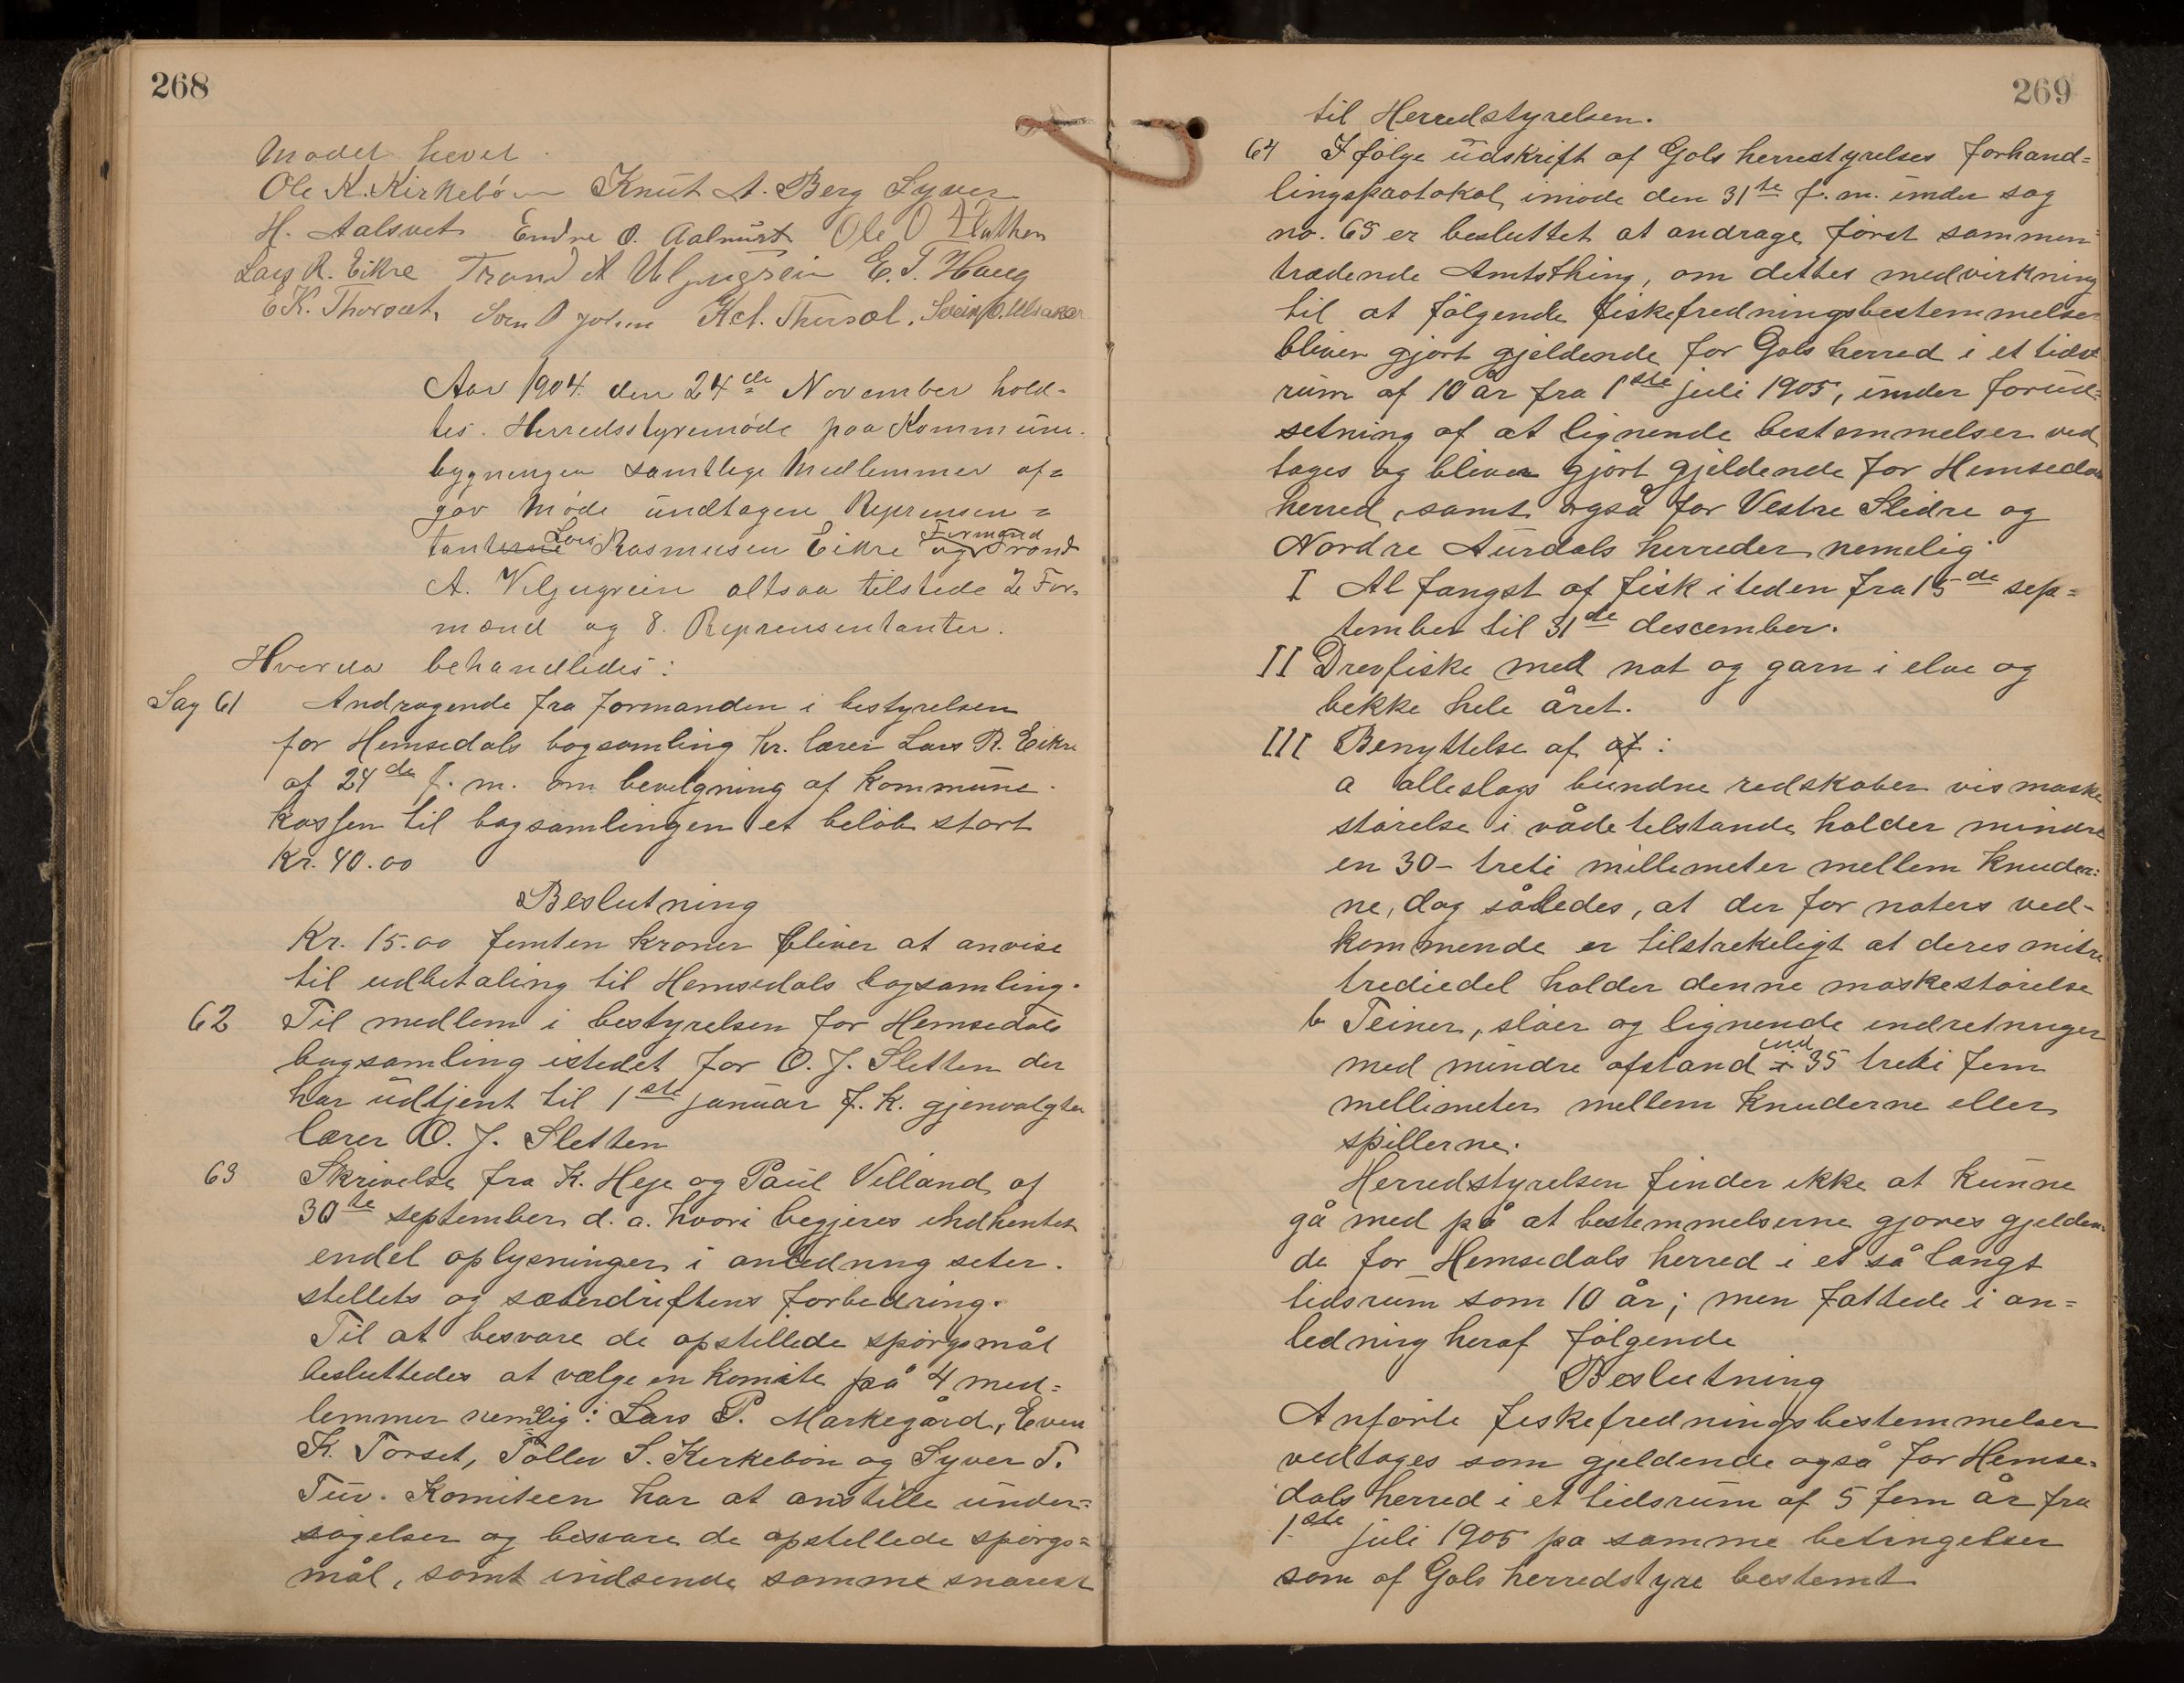 268
Mødet hevet.
Ole K. Kirkebøen Knut A. Berg Syver
H. Aalsvet Endre O. Ole O Fluthen
Lars R. Eikre Trond A E. T. Haug
E K. Thorset, Svein O. Ulsaker
Aar 1904. den 24de November hold-
tes. Herredsstyremøde paa Kommune-
bygningen samtlige Medlemmer af=
gav Møde undtagen Reprensen=
tanterne Lars Rasmusen Eikre og Formand Trond
A. Veljugrein altsaa tilstede 2 For-
mænd og 8. Reprensentanter.
Hvorda behandledes:
Sag 61 Andragende fra formanden i bestyrelsen
for Hemsedals bogsamling hr. lærer Lars R. Eikre
af 24de f. m. om bevelgning af kommune-
kassen til bogsamlingen et beløb stort
Kr. 40.00
Beslutning
Kr. 15.00 femten kroner bliver at anvise
til udbetaling til Hemsedals bogsamling.
62 Til medlem i bestyrelsen for Hemsedals
bogsamling istedet for O. J. Sletten der
har udtjent til 1ste januar f. k. gjenvalgtes
lærer O. J. Sletten
63 Skrivelse fra K. Heje og Paul Villand af
30te september d. a. hvori begjeres indhentet
endel oplysninger i anledning seter-
stellets og sæterdriftens forbedring.
Til at besvare de opstillede spørgsmål
besluttedes at vælge en komite på 4 med=
lemmer nemlig: Lars P. Markegård, Even
K. Torset, Tollev S. Kirkebøn og Syver T.
Tuv. Komiteen har at anstille under=
søgelser og besvare de opstillede spørgs=
mål, samt indsende samme snarest
269
til Herredstyrelsen.
64 Ifølge udskrift af Gols herrestyrelses forhand=
lingsprotokol imøde den 31te f. m. under sag
no. 69 er besluttet at andrage først sammen=
trædende Amtsthing, om dettes medvirkning
til at følgende fiskefredningsbestemmelser
bliver gjort gjeldende for Gols herred i et tids
rum af 10 år fra 1ste juli 1905, under forud=
setning af at lignende bestemmelser ved
tages og bliver gjort gjeldende for Hemsedals
herred, samt også for Vestre Slidre og
Nordre Aurdals herreder nemelig
I Al fangst af fisk i tiden fra 15de sep=
tember til 31de descember.
II Drevfiske med not og garn i elve og
bekke hele året.
III Benyttelse af af:
a alleslags bundne redskaber vis maske
størelse i våde tilstande holder mindre
en 30- treti millimeter mellem knuder=
ne, dog således, at der for noters ved-
kommende er tilstrekeligt at deres mitre
trediedel holder denne maskestørelse
b Teiner, sløer og lignende endretninger
med mindre afstand i end 35 treti fem
mellimeter mellem knuderne eller
spillerne.
Herredstyrelsen finder ikke at kunne
gå med på at bestemmelserne gjøres gjelden-
de for Hemsedals herred i et så langt
tidsrum som 10 år; men fattede i an=
ledning heraf følgende
Beslutning
Anførte fiskefredningsbestemmelser
vedtages som gjeldende også for Hemse=
dals herred i et tidsrum af 5 fem år fra
1ste juli 1905 pa samme betingelser
som af Gols herredstyre bestemt